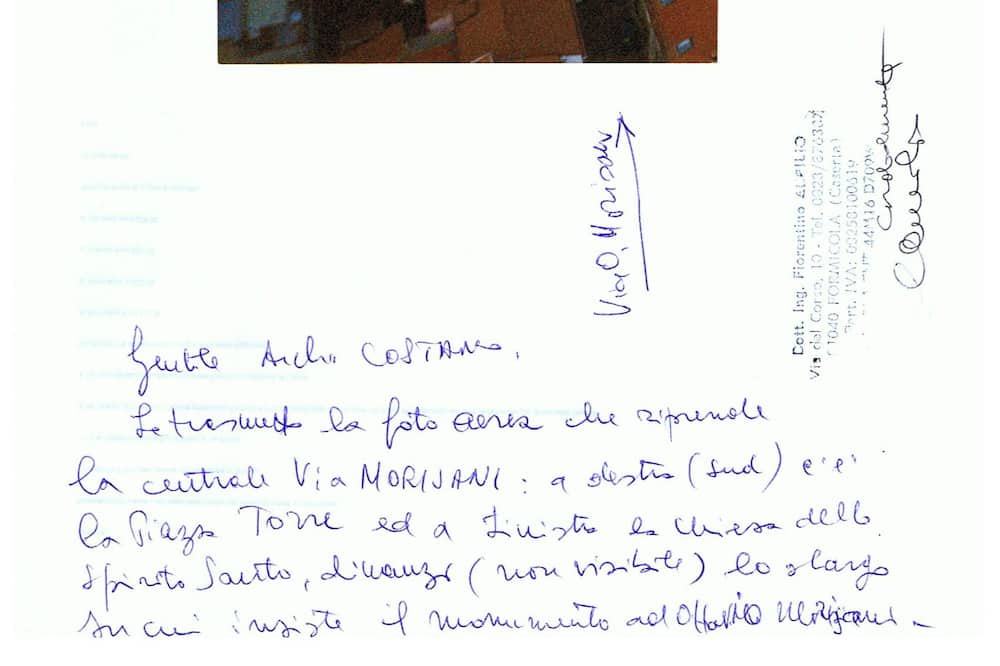 Via O. Morisani
Dott. Ing. Fiorentino ALFILIO
Via del Corso, 10 - Tel. 0823/876307
81040 FORMICOLA (Caserta)
Part. IVA: 00258100619
44M16 D709
Cordialmente
Gentile Arch. COSTANZO,
Le trasmetto la foto aerea che riprende
la centrale Via MORISANI: a destra (sud) c'è
la Piazza Torre ed a sinistra la Chiesa dello
Spirito Santo, dinanzi (non visibile) lo slargo
su cui insiste il monumento ad Ottavio Morisani -